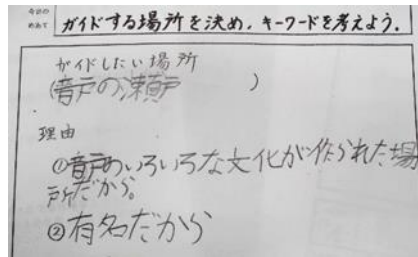 今日の
めあて
ガイドする場所を決め、キーワードを考えよう。
ガイドしたい場所
(音戸の瀬戸 )
理由
①音戸のいろいろな文化が作られた場
所だから。
②有名だから